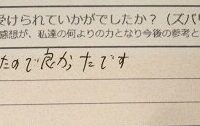 受けられていかがでしたか？（ズバリ
感想が、私達の何よりの力となり今後の参考と
たので良かったです